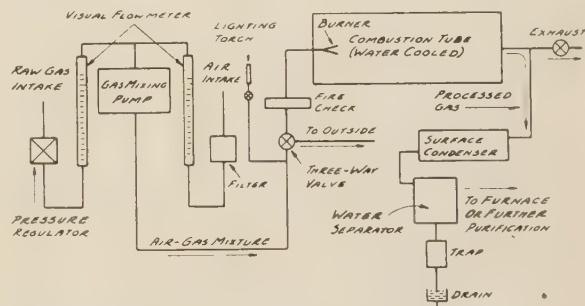 VISUAL FLOWMETER
RAW GAS
INTAKE
GAS MIXING
PUMP
AIR
INTAKE
LIGHTING
TORCH
BURNER
COMBUSTION TUBE
(WATER COOLED)
EXHAUST
FIRE
CHECK
PROCESSED
GAS
TO OUTSIDE
SURFACE
CONDENSER
THREE-WAY
VALVE
FILTER
PRESSURE
REGULATOR
AIR-GAS MIXTURE
WATER
SEPARATOR
TO FURNACE
OR FURTHER
PURIFICATION
TRAP
DRAIN